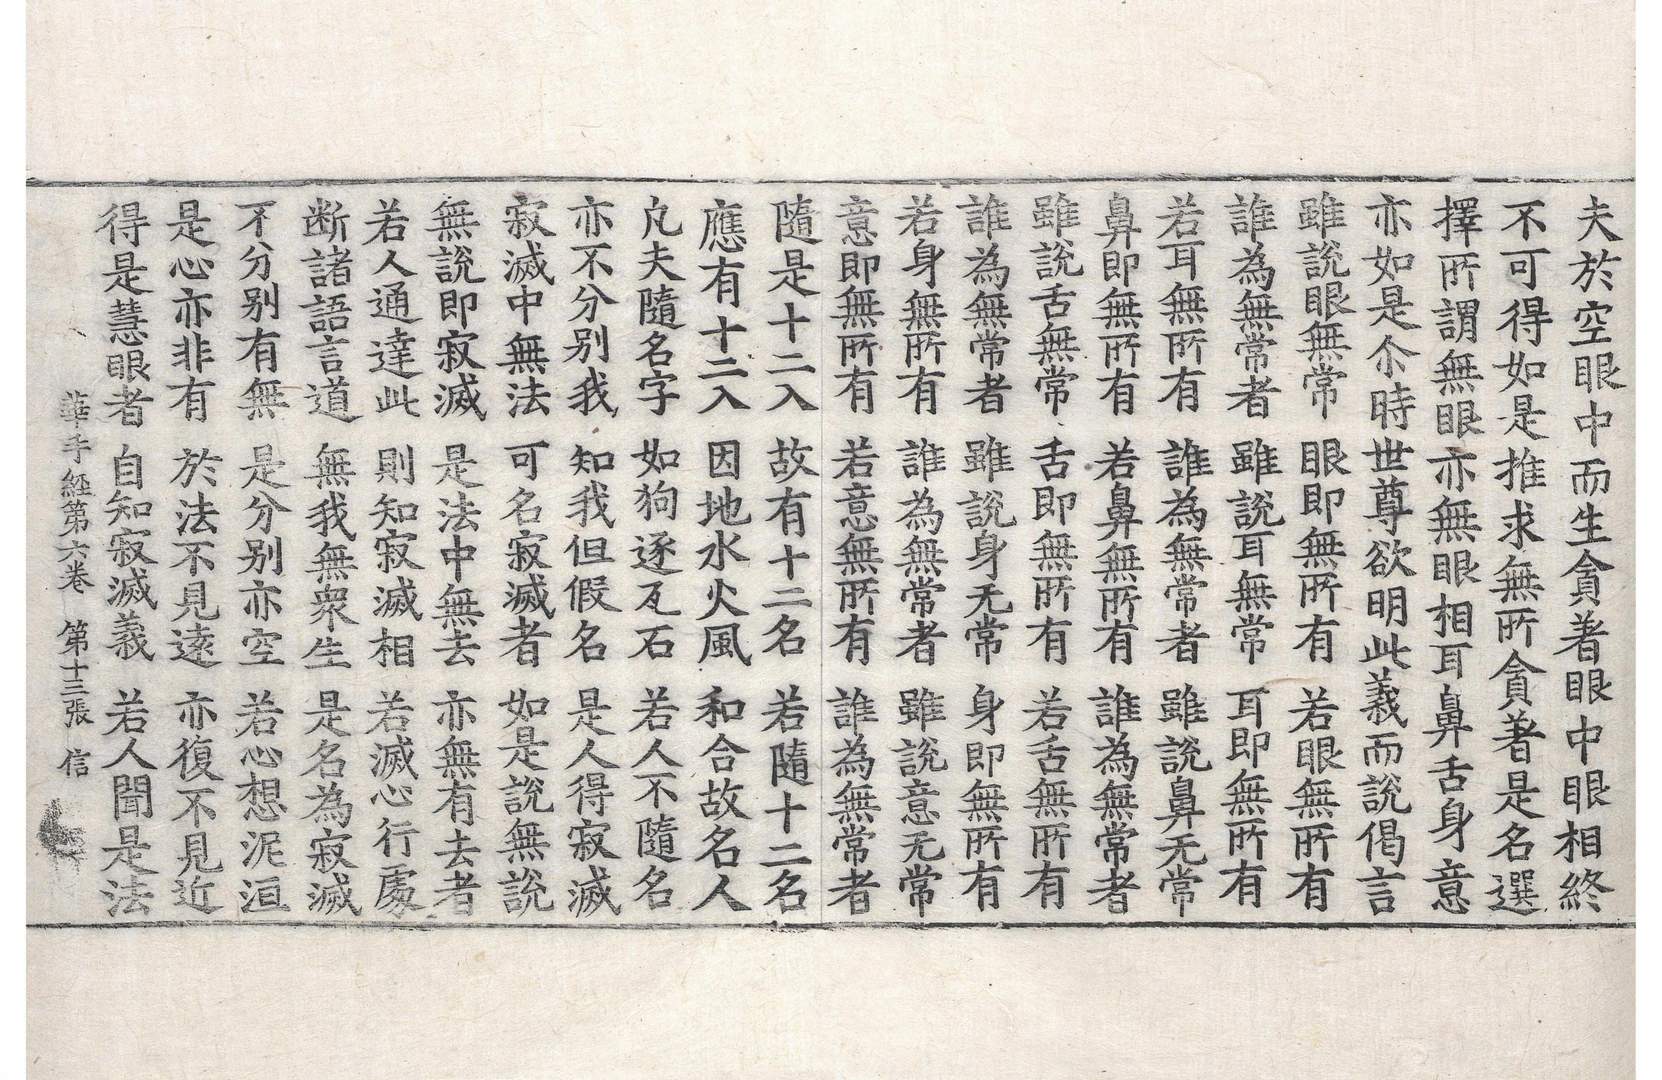 夫於空眼中而生貪著眼中眼相終
不可得如是推求無所貪著是名選
擇所謂無眼亦無眼相耳鼻舌身意
亦如是尒時世尊欲明此義而說偈言
雖說眼無常 眼即無所有 若眼無所有
誰為無常者 雖說耳無常 耳即無所有
若耳無所有 誰為無常者 雖說鼻无常
鼻即無所有 若鼻無所有 誰為無常者
雖說舌無常 舌即無所有 若舌無所有
誰為無常者 雖說身无常 身即無所有
若身無所有 誰為無常者 雖說意无常
意即無所有 若意無所有 誰為無常者
隨是十二入 故有十二名 若隨十二名
應有十二入 因地水火風 和合故名人
凡夫隨名字 如狗逐瓦石 若人不隨名
亦不分别我 知我但假名 是人得寂滅
寂滅中無法 可名寂滅者 如是說無說
無說即寂滅 是法中無去 亦無有去者
若人通達此 則知寂滅相 若滅心行處
断諸語言道 無我無衆生 是名為寂滅
不分别有無 是分别亦空 若心想泥洹
是心亦非有 於法不見遠 亦復不見近
得是慧眼者 自知寂滅義 若人聞是法
華手經第六卷 第十三張 信